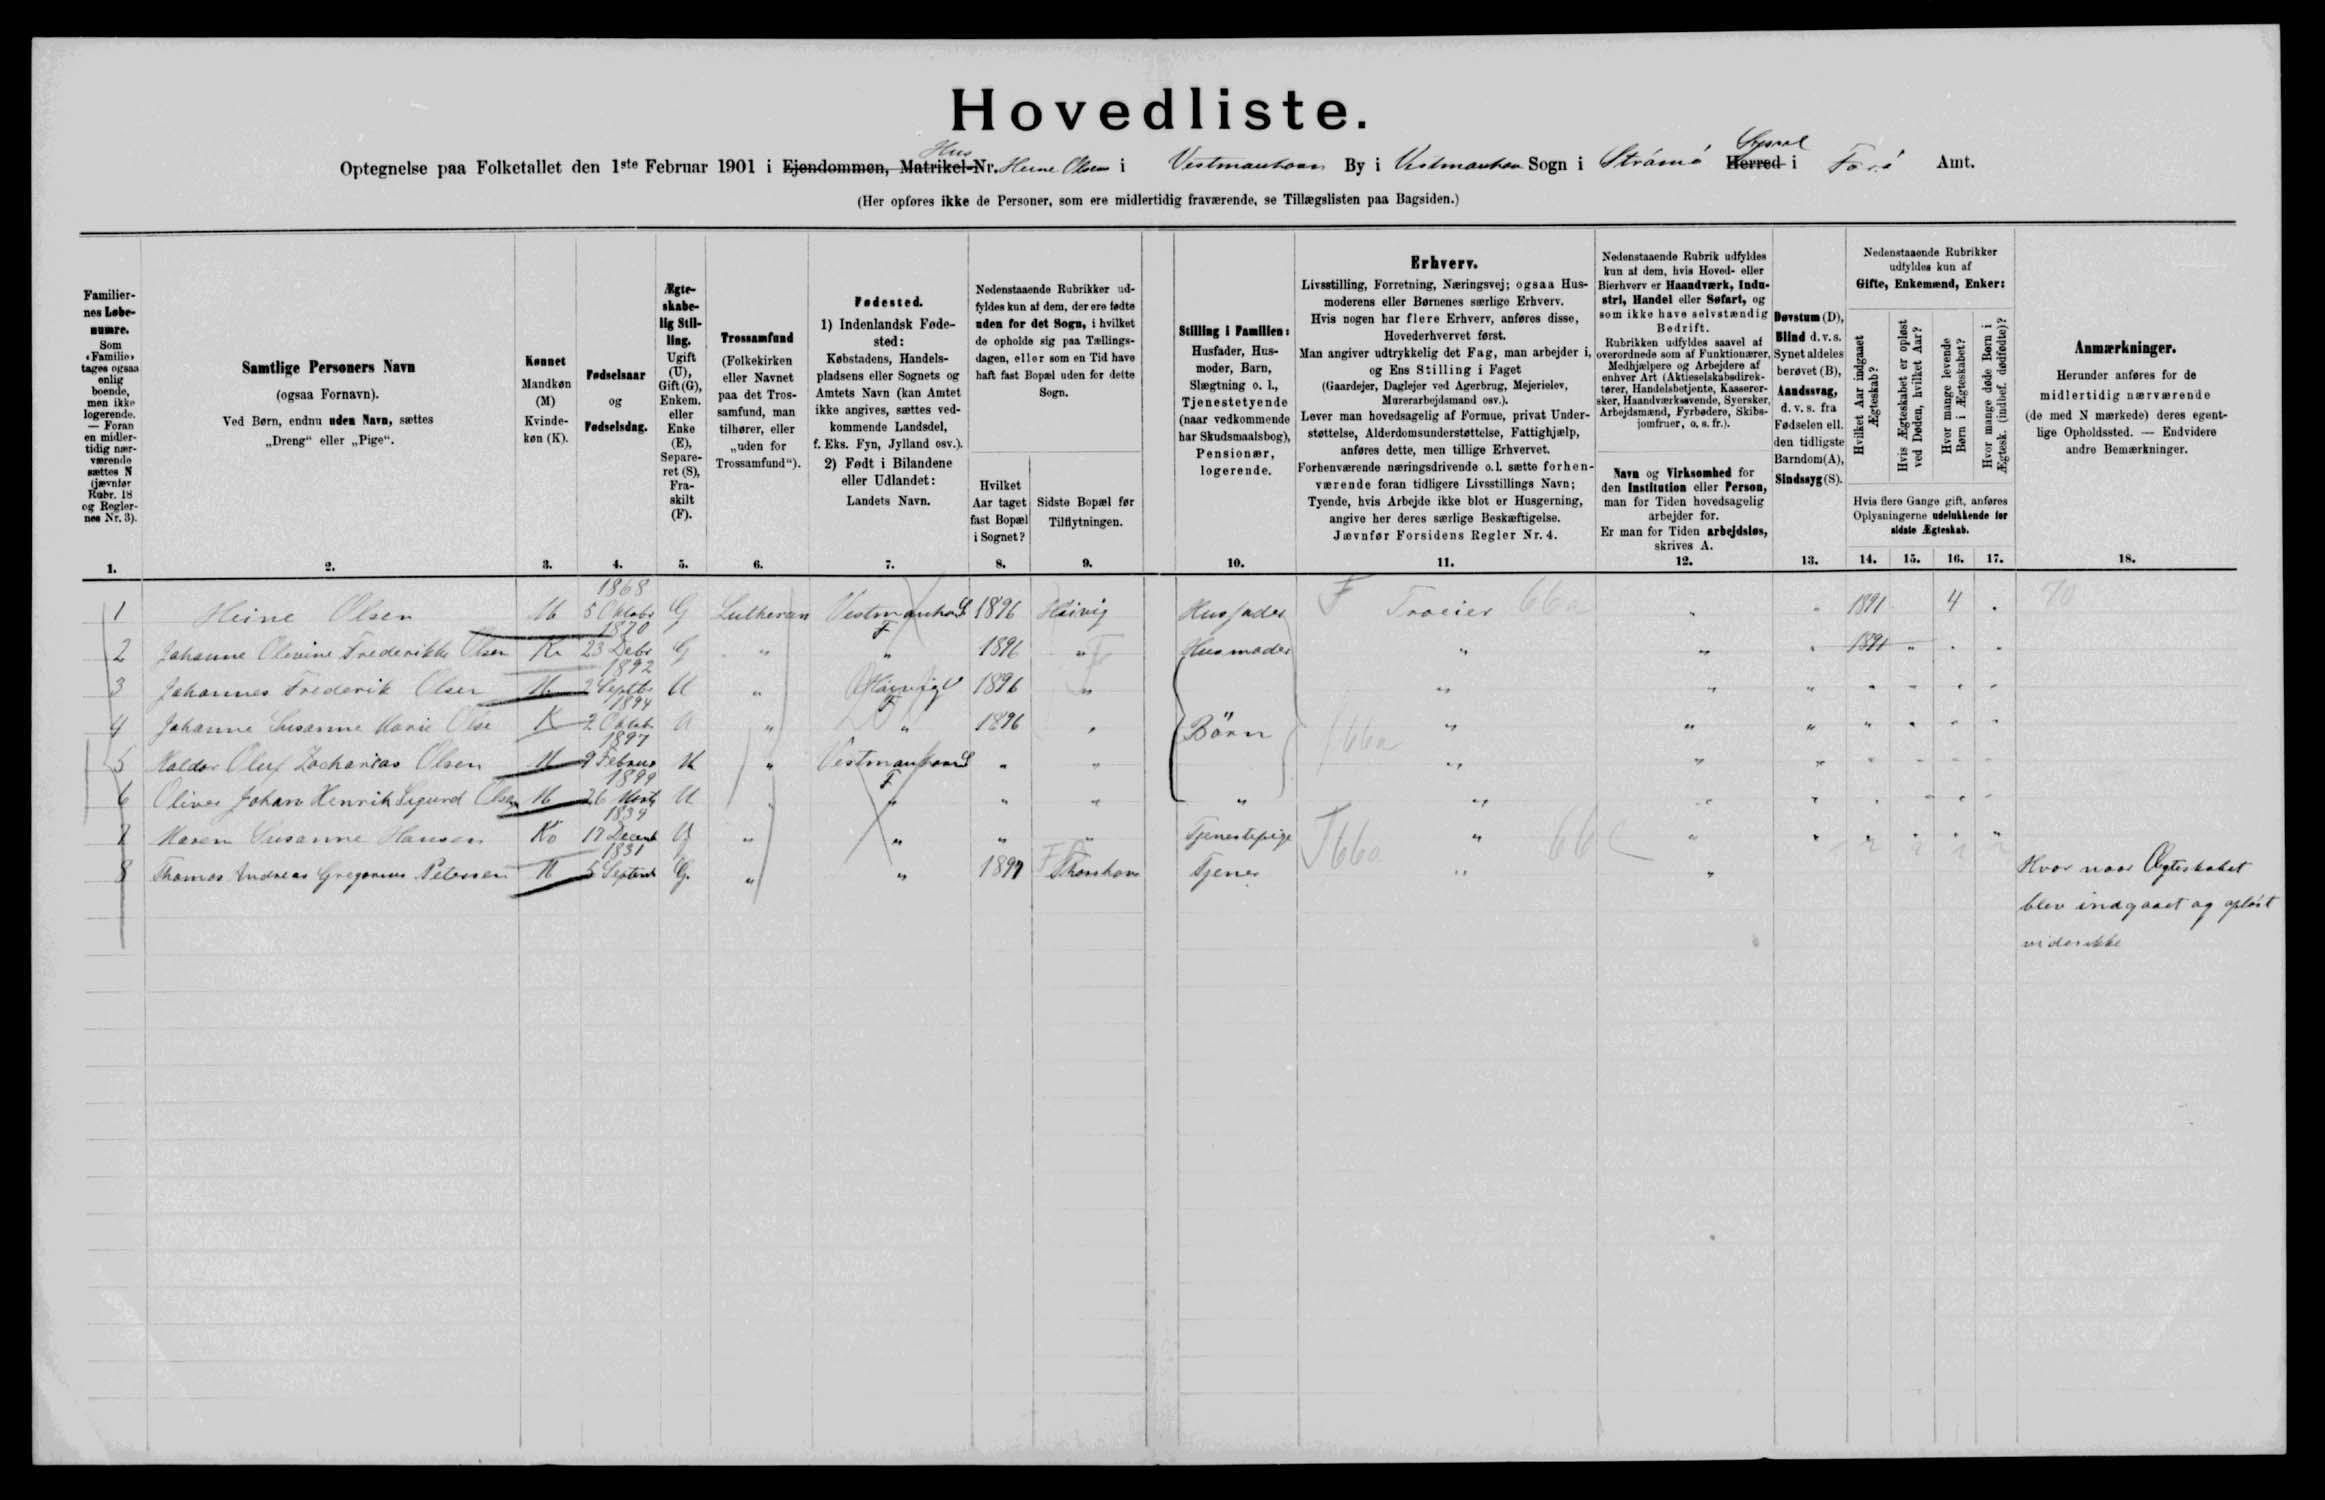 Hovedliste.
Optegnelse paa Folketallet den 1ste Februar 1901 i Ejendommen, Matrikel-Nr. Hus Heine Olsen i Vestmanhavn By i Vestmanhavn Sogn i Strömö Herred Syssel i Færö Amt.
(Her opføres ikke de Personer, som ere midlertidig fraværende, se Tillægslisten paa Bagsiden.)
Familier-
nes Løbe-
numre.
Som
«Familie»
tages ogsaa
enlig
boende,
men ikke
logerende.
— Foran
en midler-
tidig nær-
værende
sættes N
(jævnfør
Rubr. 18
og Regler-
nes Nr. 3).
1.
Samtlige Personers Navn
(ogsaa Fornavn).
Ved Børn, endnu uden Navn, sættes
„Dreng“ eller „Pige“.
2.
Kønnet
Mandkøn
(M)
Kvinde-
køn (K).
3.
Fødselsaar
og
Fødselsdag.
4.
Ægte-
skabe-
lig Stil-
ling.
Ugift
(U),
Gift (G),
Enkem.
eller
Enke
(E),
Separe-
ret (S),
Fra-
skilt
(F).
5.
Trossamfund
(Folkekirken
eller Navnet
paa det Tros-
samfund, man
tilhører, eller
„uden for
Trossamfund“).
6.
Fødested.
1) Indenlandsk Føde-
sted:
Købstadens, Handels-
pladsens eller Sognets og
Amtets Navn (kan Amtet
ikke angives, sættes ved-
kommende Landsdel,
f. Eks. Fyn, Jylland osv.).
2) Født i Bilandene
eller Udlandet:
Landets Navn.
7.
Nedenstaaende Rubrikker ud-
fyldes kun af dem, der ere fødte
uden for det Sogn, i hvilket
de opholde sig paa Tællings-
dagen, eller som en Tid have
haft fast Bopæl uden for dette
Sogn.
Hvilket
Aar taget
fast Bopæl
i Sognet?
8.
Sidste Bopæl før
Tilflytningen.
9.
Stilling i Familien:
Husfader, Hus-
moder, Barn,
Slægtning o. l.,
Tjenestetyende
(naar vedkommende
har Skudsmaalsbog),
Pensionær,
logerende.
10.
Erhverv.
Livsstilling, Forretning, Næringsvej; ogsaa Hus-
moderens eller Børnenes særlige Erhverv.
Hvis nogen har flere Erhverv, anføres disse,
Hovederhvervet først.
Man angiver udtrykkelig det Fag, man arbejder i,
og Ens Stilling i Faget
(Gaardejer, Daglejer ved Agerbrug, Mejerielev,
Murerarbejdsmand osv.).
Lever man hovedsagelig af Formue, privat Under-
støttelse, Alderdomsunderstøttelse, Fattighjælp,
anføres dette, men tillige Erhvervet.
Forhenværende næringsdrivende o.l. sætte forhen-
værende foran tidligere Livsstillings Navn;
Tyende, hvis Arbejde ikke blot er Husgerning,
angive her deres særlige Beskæftigelse.
Jævnfør Forsidens Regler Nr. 4.
11.
Nedenstaaende Rubrik udfyldes
kun af dem, hvis Hoved- eller
Bierhverv er Haandværk, Indu-
stri, Handel eller Søfart, og
som ikke have selvstændig
Bedrift.
Rubrikken udfyldes saavel af
overordnede som af Funktionærer,
Medhjælpere og Arbejdere af
enhver Art (Aktieselskabsdirek-
tører, Handelsbetjente, Kasserer-
sker, Haandværkssvende, Syersker,
Arbejdsmænd, Fyrbødere, Skibs-
jomfruer, o. s. fr.).
Navn og Virksomhed for
den Institution eller Person,
man for Tiden hovedsagelig
arbejder for.
Er man for Tiden arbejdsløs,
skrives A.
12.
Døvstum (D),
Blind d. v. s.
Synet aldeles
berøvet (B),
Aandssvag,
d. v. s. fra
Fødselen ell.
den tidligste
Barndom (A),
Sindssyg (S).
13.
Nedenstaaende Rubrikker
udfyldes kun af
Gifte, Enkemænd, Enker:
Hvilket Aar indgaaet
Ægteskab?
Hvis Ægteskabet er opløst
ved Døden, hvilket Aar?
Hvor mange levende
Børn i Ægteskabet?
Hvor mange døde Børn i
Ægtesk. (indbef. dødfødte)?
Hvis flere Gange gift, anføres
Oplysningerne udelukkende for
sidste Ægteskab.
14. 15. 16. 17.
Anmærkninger.
Herunder anføres for de
midlertidig nærværende
(de med N mærkede) deres egent-
lige Opholdssted. — Endvidere
andre Bemærkninger.
18.
1 Heine Olsen M 1868 5 Oktobr G Lutheran Vestmanhavn 1896 Husfader F 66a 1891 4 70
2 Johanne Olevine Frederikke Olsen K 1870 23 Debr G " " 1896 " Husmoder " " 1891
3 Johannes Frederik Olsen M 1892 2 Septbr U " 1896 "
4 Johanne Susanne Marie Olse K 1894 2 Oktob U " " 1896 " Börn 66a
5 Haldor Oluf Zacharias Olsen M 1897 9 Februar U " Vestmanhavn " "
6 Oliver Johan Henrik Sigurd Olsen M 1899 26 Marts U " " " "
7 Maren Susanne Hansen K 1839 17 Decemb " " " " Tjenestepige 66a " 66
8 Thomas Andreas Gregorius Petersen M 1831 5 Septemb G. " " 1897 Thorshavn Tjener " "
Hvor naar Ægteskabet
blev indgaaet og oplöst
vides ikke